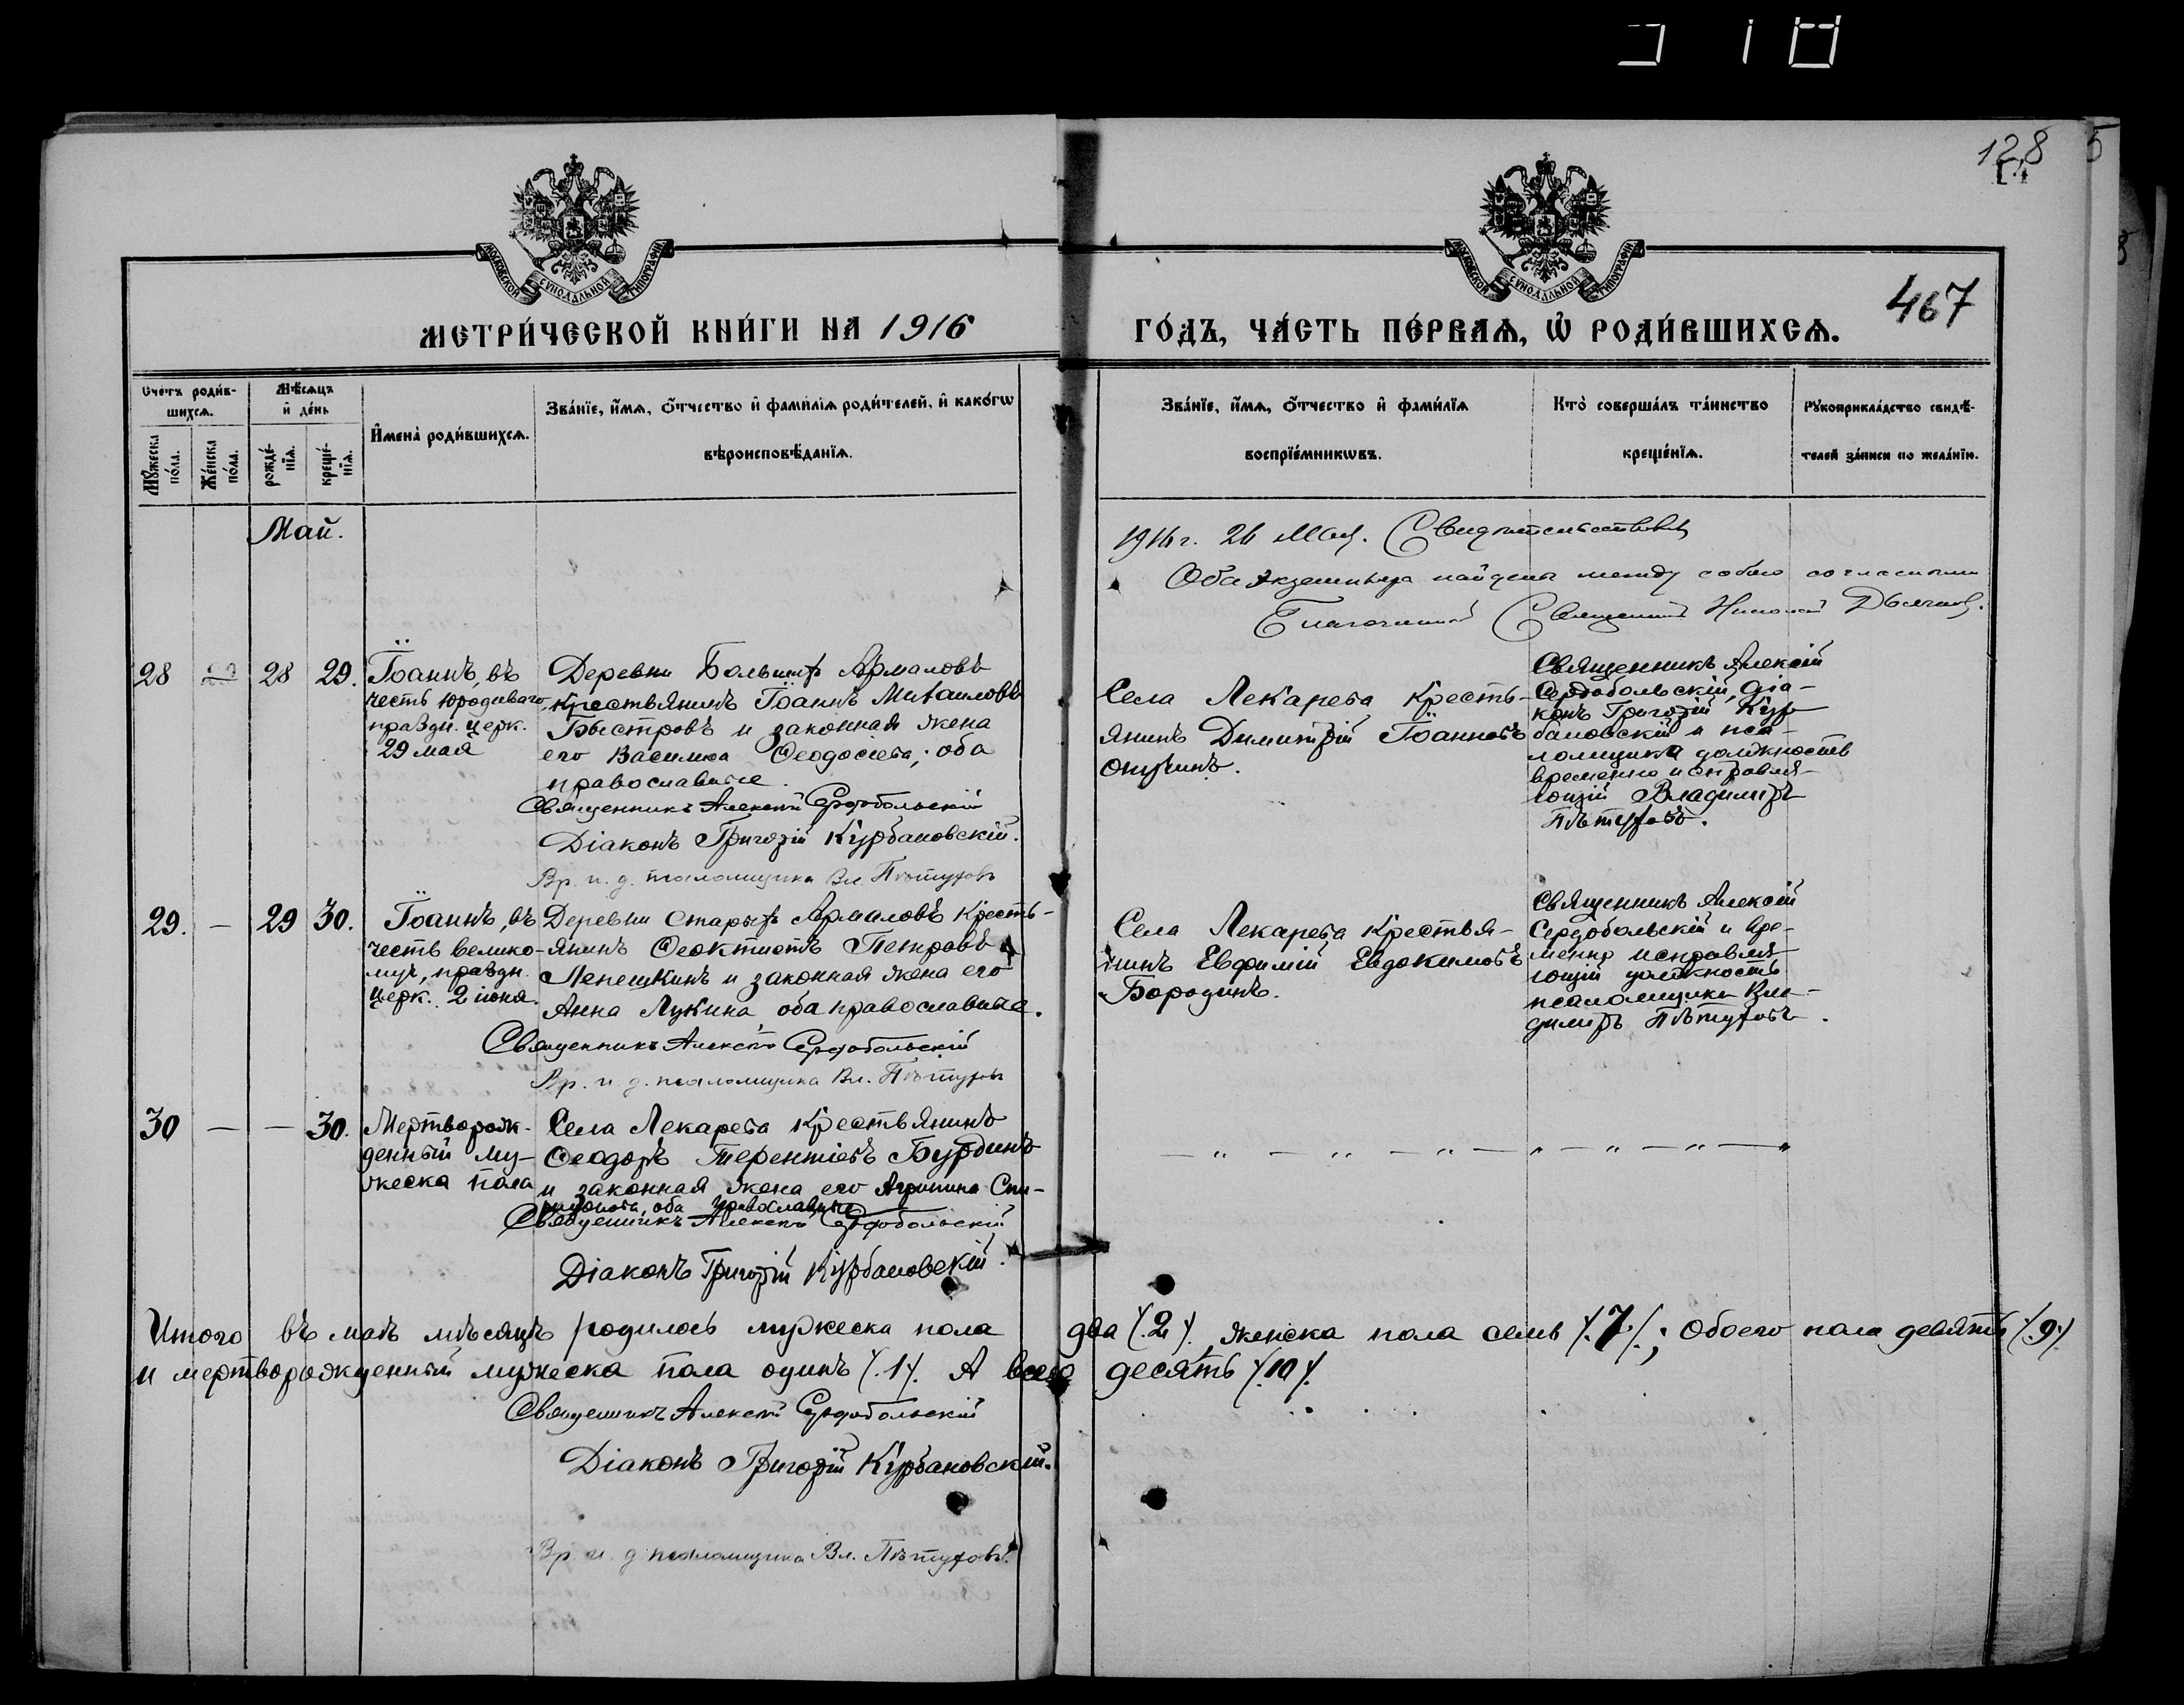 128
5
МОСКОВСКОЙ СѴНОДАЛЬНОЙ ТИПОГРАФІИ
МОСКОВСКОЙ СѴНОДАЛЬНОЙ ТИПОГРАФІИ
467
МЕТРИ́ЧЕСКОЙ КНИ́ГИ НА 1916
ГО́ДЪ, ЧА́СТЬ ПЕ́РВАѦ, Ѡ҆ РОДИ́ВШИХСѦ.
Счетъ роди́в-
шихсѧ.
Мꙋ́жеска
по́ла.
Же́нска
по́ла.
Мѣ́сѧцъ
и҆ де́нь
рожде́-
нїѧ.
креще́-
нїѧ.
И҆мена̀ роди́вшихсѧ.
Зва́нїе, и҆́мѧ, ѻ҆́тчество и҆ фами́лїѧ роди́телей, и҆ како́гѡ
вѣроисповѣ́данїѧ.
Зва́нїе, и҆́мѧ, ѻ҆́тчество и҆ фами́лїѧ
воспрїе́мникѡвъ.
Кто̀ соверша́лъ та́инство
креще́нїѧ.
Рꙋкоприкла́дство свидѣ́-
телей за́писи по жела́нїю.
Май.
1916 г. 26 Мая. Свидѣтельствовалъ
Оба экземпляра найдены между собою согласными
Благочинный Священникъ Николай
28
28 29.
Іоаннъ, въ
честь юродиваго,
праздн. церк.
29 мая
Деревни Большихъ Армаловъ
крестьянинъ Іоаннъ Михаиловъ
Быстровъ и законная жена
его Василиса Ѳеодосіева; оба
православные.
Священникъ Алексій Сердобольскій
Діаконъ Григорій Курбановскій.
Вр. и. д. псаломщика Вл. Пѣтуховъ
Села Лекарева кресть-
янинъ Димитрій Іоанновъ
Опучинъ.
Священникъ Алексій
Сердобольскій, діа-
конъ Григорій Кур-
бановскій и пса-
ломщика должность
временно исправля-
ющій Владиміръ
Пѣтуховъ.
29. — 29 30.
Іоаннъ, въ
честь велико-
муч., праздн.
церк. 2 іюня.
Деревни Старыхъ Армаловъ кресть-
янинъ Ѳеоктистъ Петровъ
Лепешкинъ и законная жена его
Анна Лукина, оба православные.
Священникъ Алексій Сердобольскій
Вр. и. д. псаломщика Вл. Пѣтуховъ
Села Лекарева крестья-
нинъ Евфимій Евдокимовъ
Бородинъ.
Священникъ Алексій
Сердобольскій и вре-
менно исправля-
ющій должность
псаломщика Вла-
диміръ Пѣтуховъ.
30 — — 30.
Мертворож-
денный му-
жеска пола
Села Лекарева крестьянинъ
Ѳеодоръ Терентіевъ Бурдинъ
и законная жена его Агрипина Спи-
ридонова, оба православные
Священникъ Алексій Сердобольскій
Діаконъ Григорій Курбановскій.
— „ — „ — „ — „ — „ — „ — „
Итого въ маѣ мѣсяцѣ родилось мужеска пола два /.2./. женска пола семь /.7./.; обоего пола девять /.9./.
и мертворожденный мужеска пола одинъ /.1./. А всего десять /.10./.
Священникъ Алексій Сердобольскій
Діаконъ Григорій Курбановскій.
Вр. и. д. псаломщика Вл. Пѣтуховъ.